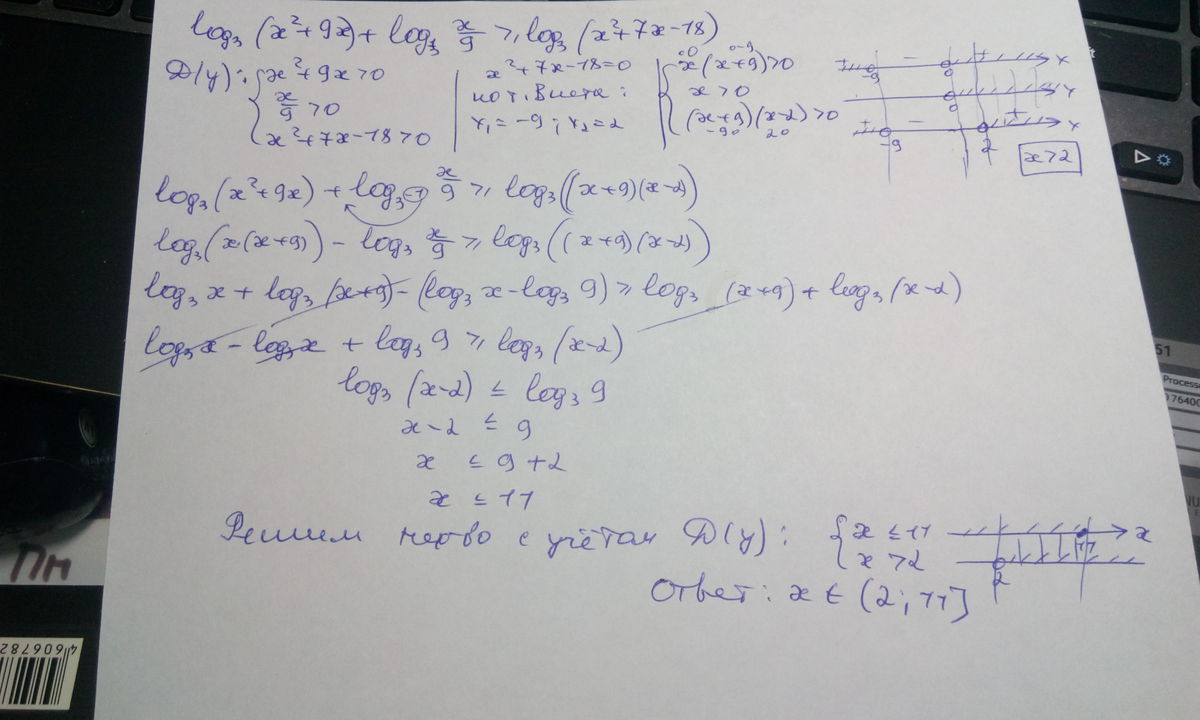 log₃(x²+9x) + log_{1/3} x/9 ≥ log₃(x²+7x-18)
D(y): { x²+9x>0
x/9 >0
x²+7x-18>0
x²+7x-18=0
по т. Виета:
x₁=-9; x₂=2
{ x(x+9)>0
x>0
(x+9)(x-2)>0
≠0 ≠-9
-9 0 2 0
+ - + x
-9 0
x
0
+ - + x
-9 2
x>2
log₃(x²+9x) + log₃₍₋₁₎ x/9 ≥ log₃((x+9)(x-2))
log₃(x(x+9)) - log₃ x/9 ≥ log₃((x+9)(x-2))
log₃x + log₃(x+9) - (log₃x - log₃9) ≥ log₃(x+9) + log₃(x-2)
log₃x - log₃x + log₃9 ≥ log₃(x-2)
log₃(x-2) ≤ log₃9
x-2 ≤ 9
x ≤ 9+2
x ≤ 11
Решим с учётом D(y): { x ≤ 11
x > 2
11 x
2
Ответ: x ∈ (2; 11]
Пн
4606782
51
Process